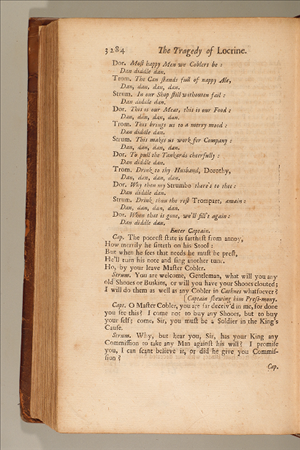 3284 The Tragedy of Locrine.
Dor. Most happy Men we Coblers be:
Dan diddle dan.
Trom. The Can stands full of nappy Ale,
Dan, dan, dan, dan.
Strum. In our Shop still withouten fail:
Dan diddle dan.
Dor. This is our Meat, this is our Food:
Dan, dan, dan, dan.
Trom. This brings us to a merry mood:
Dan diddle dan.
Strum. This makes us work for Company:
Dan, dan, dan, dan.
Dor. To pull the Tankards chearfully:
Dan diddle dan.
Trom. Drink to thy Husband, Dorothy,
Dan, dan, dan, dan.
Dor. Why then my Strumbo there's to thee:
Dan diddle dan.
Strum. Drink thou the rest Trompart, amain:
Dan, dan, dan, dan.
Dor. When that is gone, we'll fill't again:
Dan diddle dan.
Enter Captain.
Cap. The poorest state is farthest from annoy,
How merrily he sitteth on his Stool:
But when he sees that needs he must be prest,
He'll turn his note and sing another tune.
Ho, by your leave Master Cobler.
Strum. You are welcome, Gentleman, what will you any
old Shooes or Buskins, or will you have your Shooes clouted;
I will do them as well as any Cobler in Cathnes whatsoever?
[Captain shewing him Press-mony.
Capt. O Master Cobler, you are far deceiv'd in me, for do
you see this? I come not to buy any Shooes, but to buy
your self; come, Sir, you must be a Soldier in the King's
Cause.
Strum. Why, but hear you, Sir, has your King any
Commission to take any Man against his will? I promise
you, I can scant believe it, or did he give you Commis-
sion?
Cap.